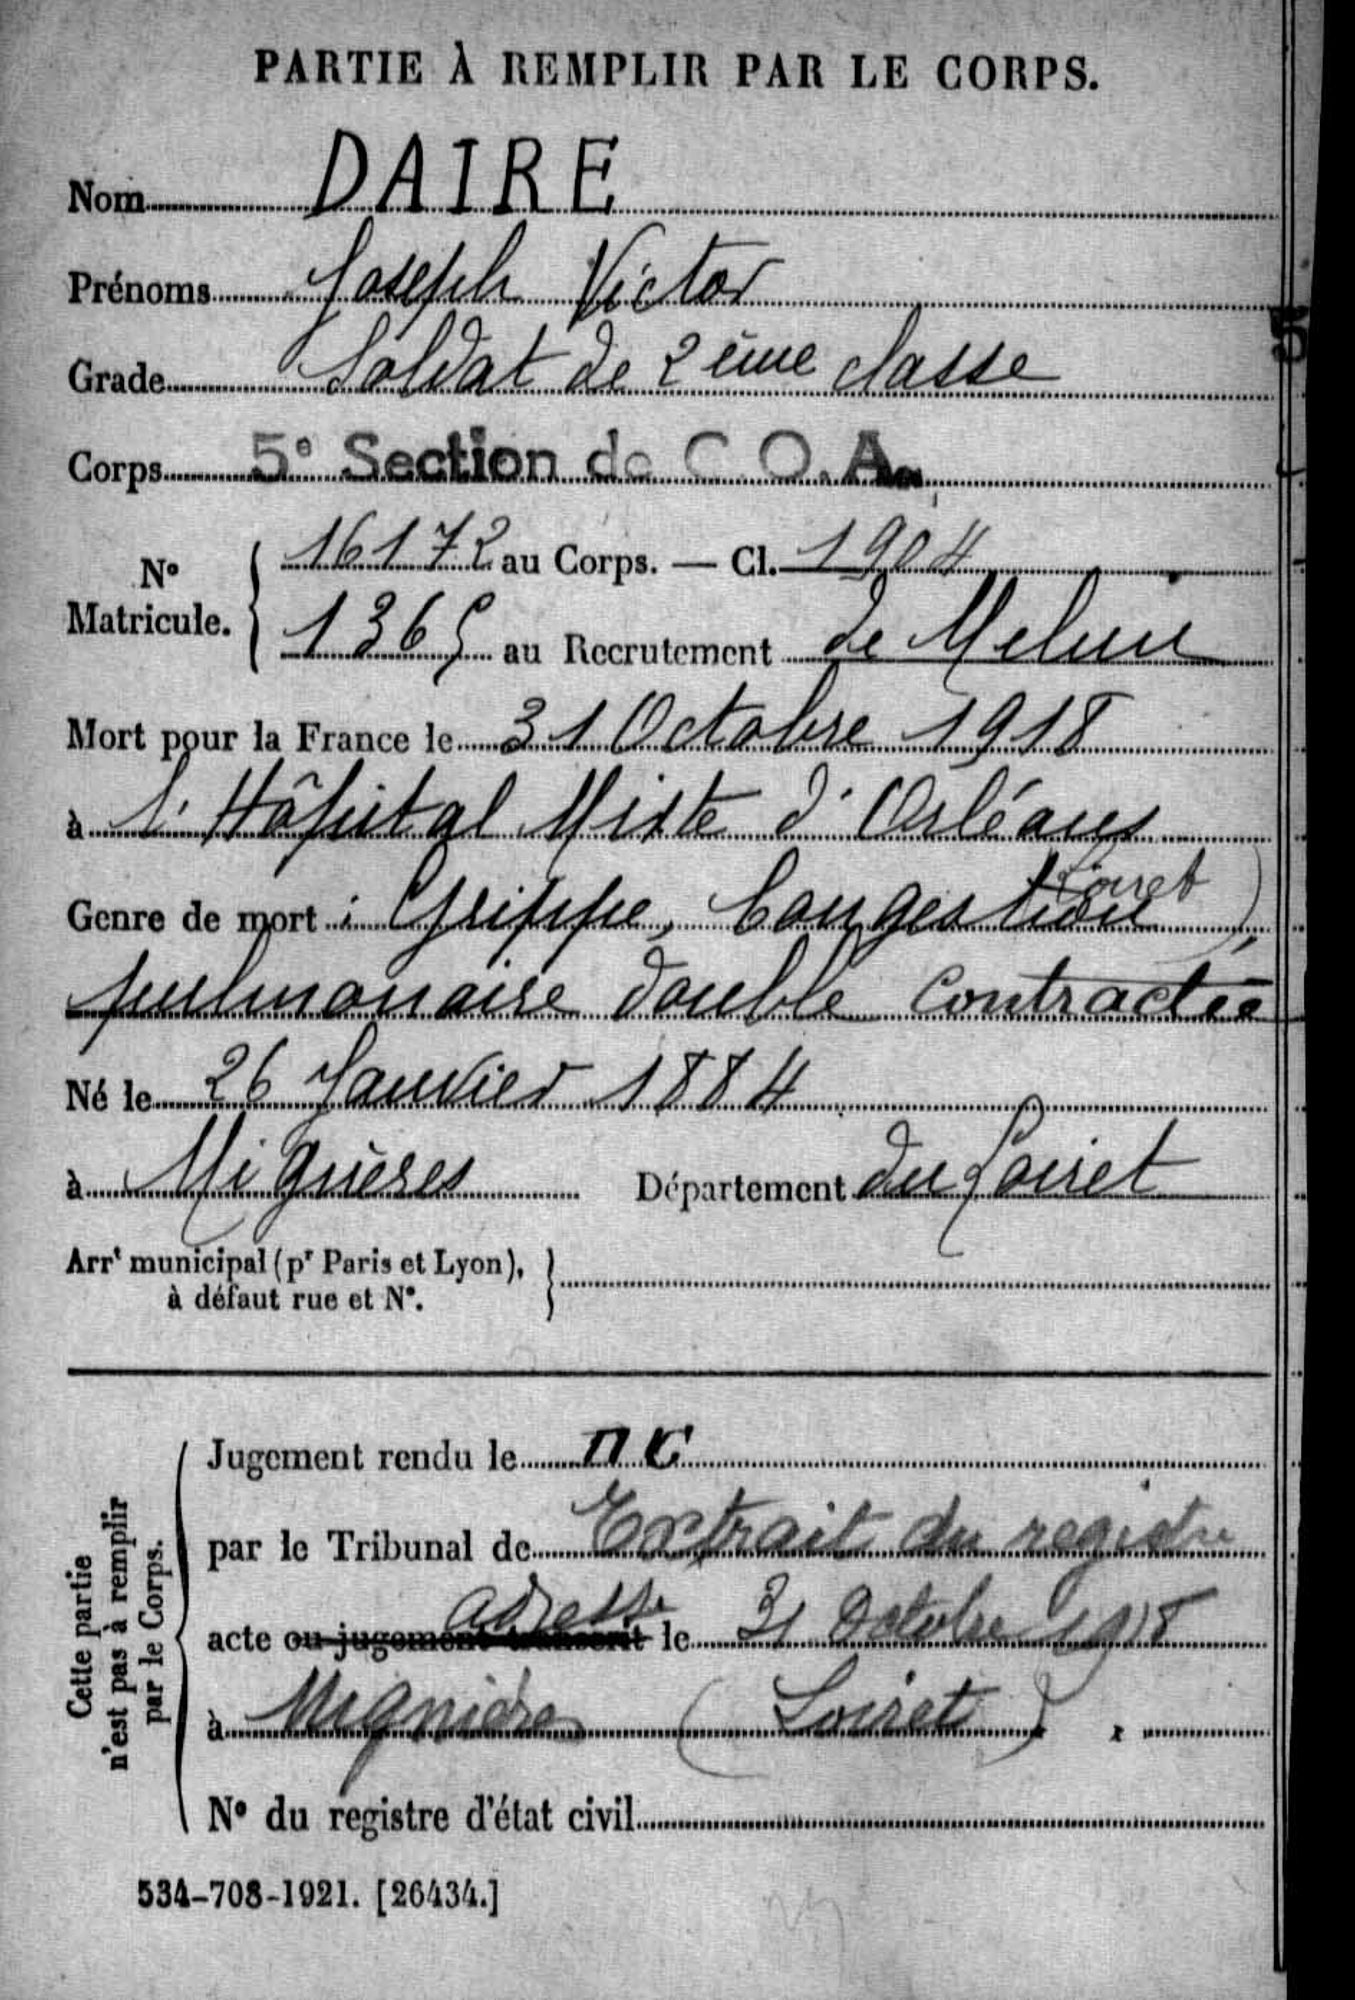 PARTIE À REMPLIR PAR LE CORPS.
Nom DAIRE
Prénoms Joseph Victor
Grade Soldat de 2ème classe
Corps 5e Section de C.O.A.
N° Matricule. 16172 au Corps. — Cl. 1904
1365 au Recrutement de Melun
Mort pour la France le 31 Octobre 1918
à l'Hôpital Mixte d'Orléans
Loiret)
Genre de mort : Grippe, Congestion
pulmonaire double contractée
Né le 26 Janvier 1884
à Mignères Département du Loiret
Arrt municipal (pr Paris et Lyon),
à défaut rue et N°.
Cette partie
n'est pas à remplir
par le Corps.
Jugement rendu le
par le Tribunal de Extrait du registre
adressé
acte ou jugement transcrit le 31 Octobre 1918
à Mignières (Loiret)
N° du registre d'état civil
534-708-1921. [26434.]